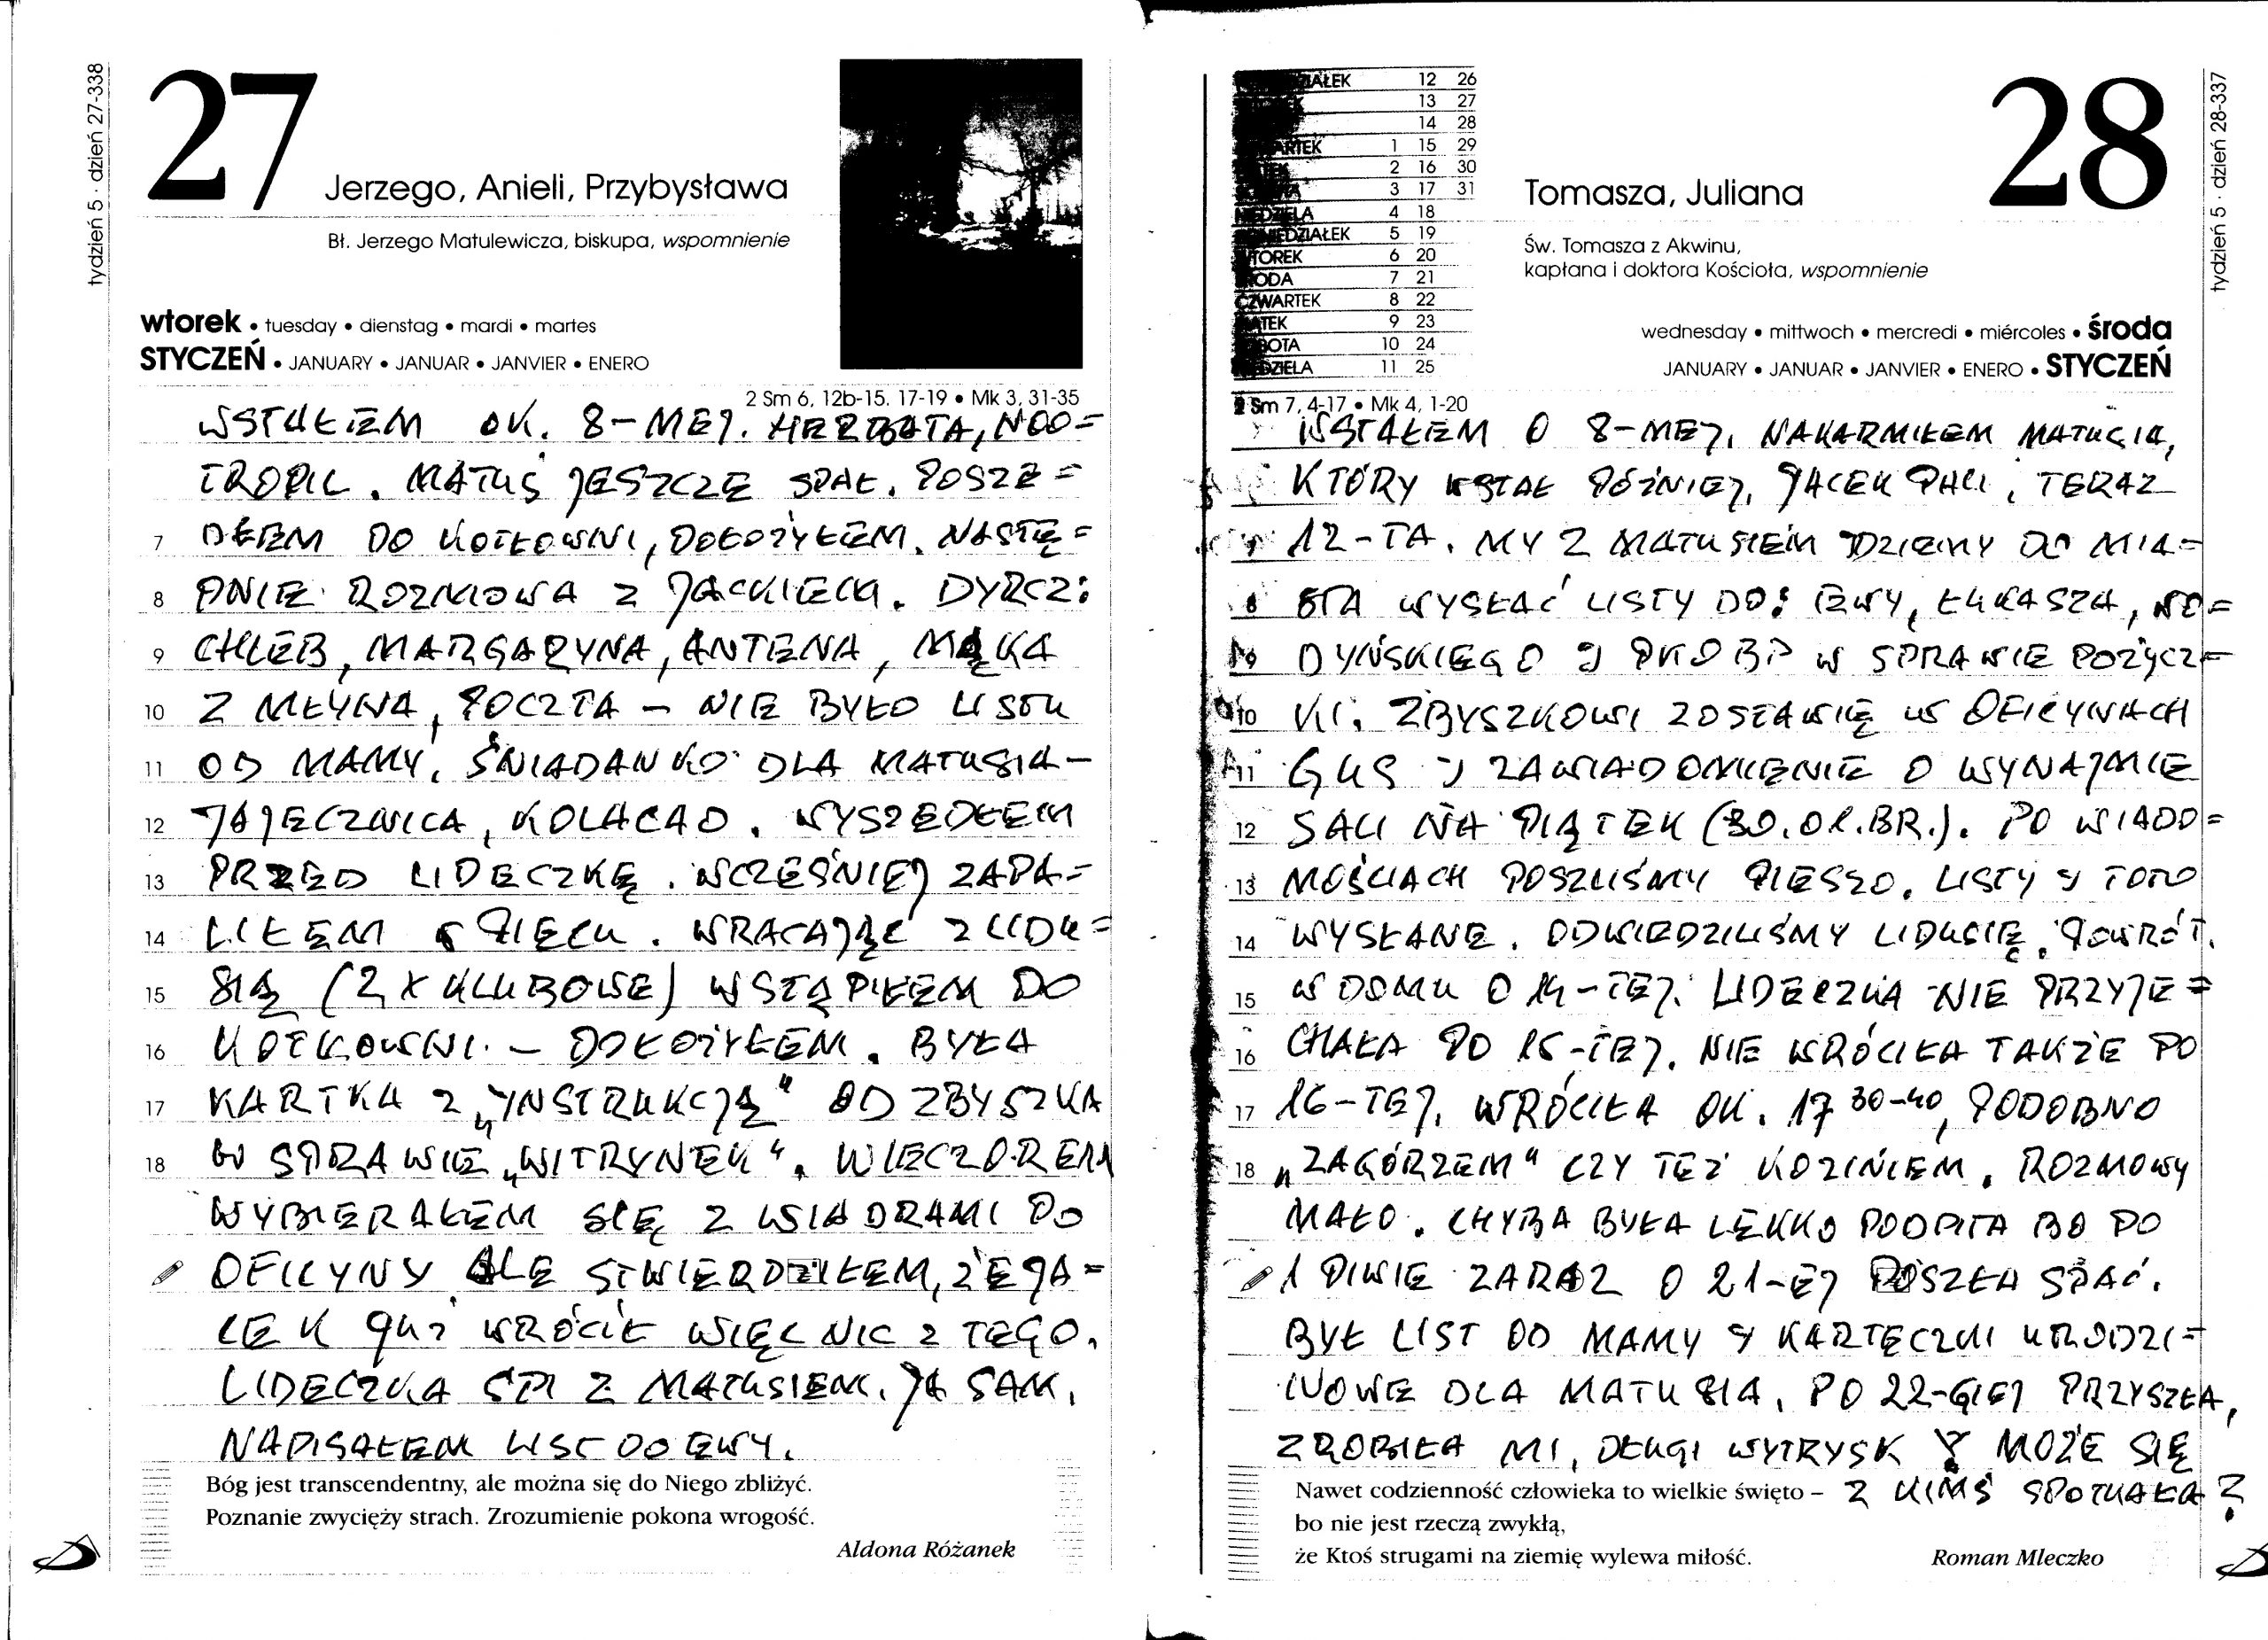 tydzień 5 · dzień 27-338
27
Jerzego, Anieli, Przybysława
Bł. Jerzego Matulewicza, biskupa, wspomnienie
wtorek • tuesday • dienstag • mardi • martes
STYCZEŃ • JANUARY • JANUAR • JANVIER • ENERO
2 Sm 6, 12b-15. 17-19 • Mk 3, 31-35
WSTAŁEM OK. 8-MEJ. HERBATA, NOO=
TROPIL. MATUŚ JESZCZE SPAŁ. POSZE=
7 DŁEM DO KOTŁOWNI, DOŁOŻYŁEM. NASTĘ=
8 PNIE ROZMOWA Z JACKIEM. DYRCZ:
9 CHLEB, MARGARYNA, ANTENA, MĄKA
10 Z MŁYNA, POCZTA – NIE BYŁO LISTU
11 OD MAMY. ŚNIADANKO DLA MATUSIA –
12 JAJECZNICA, KOLACAO. WYSZEDŁEM
13 PRZED LIDECZKĘ. WCZEŚNIEJ ZAPA=
14 LIŁEM W PIECU. WRACAJĄC Z LIDU=
15 SIĄ (2 X KLUBOWE) WSTĄPIŁEM DO
16 KOTŁOWNI. – DOŁOŻYŁEM. BYŁA
17 KARTKA Z „YNSTRUKCJĄ" OD ZBYSZKA
18 W SPRAWIE „WITRYNEK". WIECZOREM
WYBIERAŁEM SIĘ Z WIADRAMI DO
OFICYNY ALE STWIERDZIŁEM, ŻE JA=
CEK JUŻ WRÓCIŁ WIĘC NIC Z TEGO.
LIDECZKA ŚPI Z MATUSIEM. JA SAM.
NAPISAŁEM LIST DO EWY.
Bóg jest transcendentny, ale można się do Niego zbliżyć.
Poznanie zwycięży strach. Zrozumienie pokona wrogość.
Aldona Różanek
28
tydzień 5 · dzień 28-337
DZIAŁEK 12 26
13 27
14 28
ARTEK 1 15 29
TEK 2 16 30
3 17 31
NIEDZIELA 4 18
PONIEDZIAŁEK 5 19
WTOREK 6 20
ŚRODA 7 21
CZWARTEK 8 22
PIĄTEK 9 23
SOBOTA 10 24
NIEDZIELA 11 25
Tomasza, Juliana
Św. Tomasza z Akwinu,
kapłana i doktora Kościoła, wspomnienie
wednesday • mittwoch • mercredi • miércoles • środa
JANUARY • JANUAR • JANVIER • ENERO • STYCZEŃ
2 Sm 7, 4-17 • Mk 4, 1-20
WSTAŁEM O 8-MEJ, NAKARMIŁEM MATUSIA,
KTÓRY WSTAŁ PÓŹNIEJ, JACEK PALI, TERAZ
12-TA. MY Z MATUSIEM IDZIEMY DO MIA=
8 STA WYSŁAĆ LISTY DO: EWY, ŁUKASZA, WO=
9 DYŃSKIEGO J PKO BP W SPRAWIE POŻYCZ=
10 KI. ZBYSZKOWI ZOSTAWIĘ W OFICYNACH
11 GUS J ZAWIADOMIENIE O WYNAJMIE
12 SALI NA PIĄTEK (30.01.BR.). PO WIADO=
13 MOŚCIACH POSZLIŚMY PIESZO. LISTY J TOTO
14 WYSŁANE. ODWIEDZILIŚMY LIDUSIĘ. POWRÓT.
15 W DOMU O 14-TEJ. LIDECZKA NIE PRZYJE=
16 CHAŁA PO 15-TEJ. NIE WRÓCIŁA TAKŻE PO
17 16-TEJ. WRÓCIŁA OK. 17 30-40, PODOBNO
18 „ZAGÓRZEM" CZY TEŻ KOZINIEM. ROZMOWY
MAŁO. CHYBA BYŁA LEKKO PODPITA BO PO
1 PIWIE ZARAZ O 21-EJ POSZŁA SPAĆ.
BYŁ LIST DO MAMY J KARTECZKI URODZI=
NOWE DLA MATUSIA. PO 22-GIEJ PRZYSZŁA,
ZROBIŁA MI, DŁUGI WYTRYSK Y MOŻE SIĘ
Z KIMŚ SPOTKAŁA?
Nawet codzienność człowieka to wielkie święto –
bo nie jest rzeczą zwykłą,
że Ktoś strugami na ziemię wylewa miłość.
Roman Mleczko